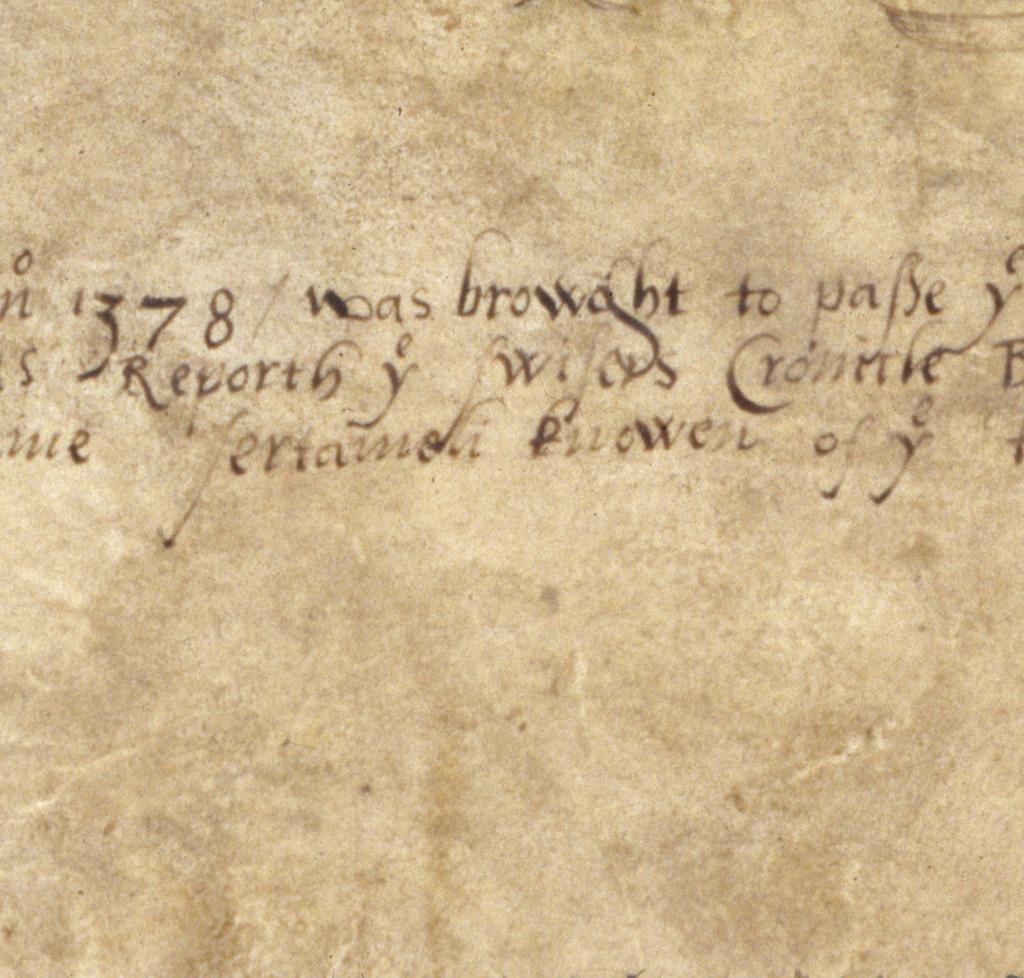 1378 / was browght to passe yᵉ
Reporth yᵉ swisers Cronicle
sertaineli knowen of yᵉ